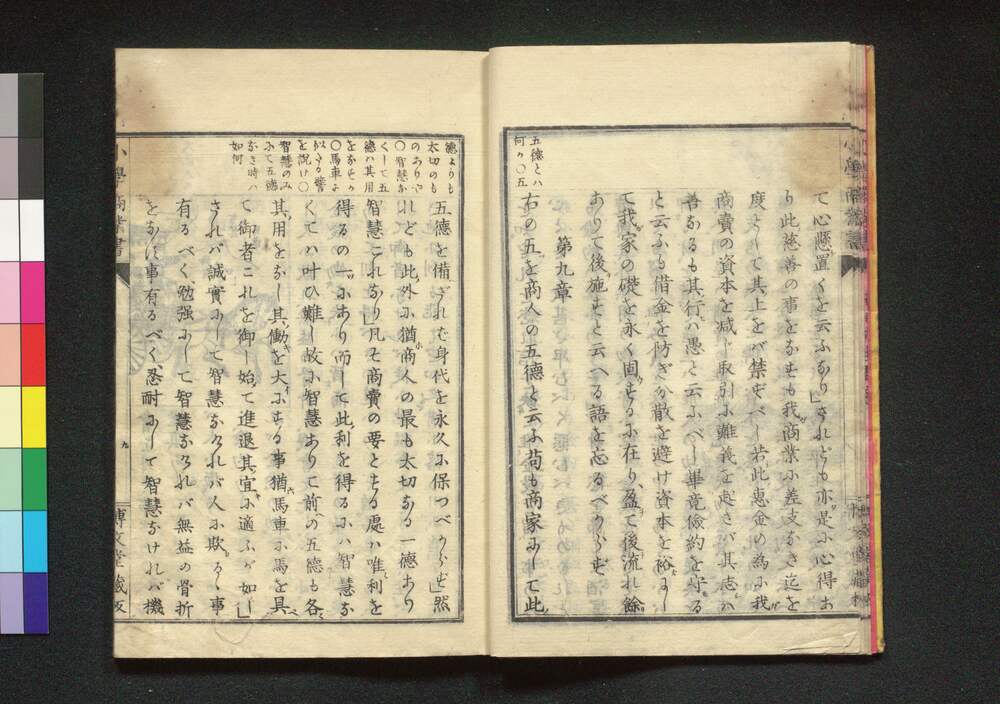 て心懸置くを云ふなり」されども亦是に心得お
り此慈善の事をなせども我商業に差支なき迄を
度として其上をバ禁ずべし若此惠金の為に我
商賣の資本を减じ取引に難義を起さバ其志ハ
善なるも其行ハ愚と云ふべし畢竟儉約を守る
と云ふも借金を防ぎ分散を避け資本を裕にし
て我家の礎を永く固むるに在り盈て後流れ餘
ありて後施すと云へる語を忘るべからず
第九章
五德とハ
何か〇五
右の五を商人の五德と云ふ苟も商家にして此
德よりも
太切のも
のありや
〇智慧な
くして五
德ハ其用
をなすか
〇馬車よ
を說け〇
智慧のみ
にて五德
なき時ハ
如何
五德を備ざれバ身代を永久に保つべからず」然
れども此外に猶商人の最も太切なる一德あり
智慧これなり」凡そ商賣の要とする處ハ唯利を
得るの一にあり而して此利を得るにハ智慧な
くてハ叶ひ難し故に智慧ありて前の五德も各
其用をなし其働を大にする事猶馬車に馬を具
て御者これを御し始て進退其宜に適ふが如し」
されバ誠實にして智慧なけれバ人に欺るゝ事
有るべく勉强にして智慧なけれバ無益の骨折
をなす事有るべく忍耐にして智慧なけれバ機
九
博文堂藏板